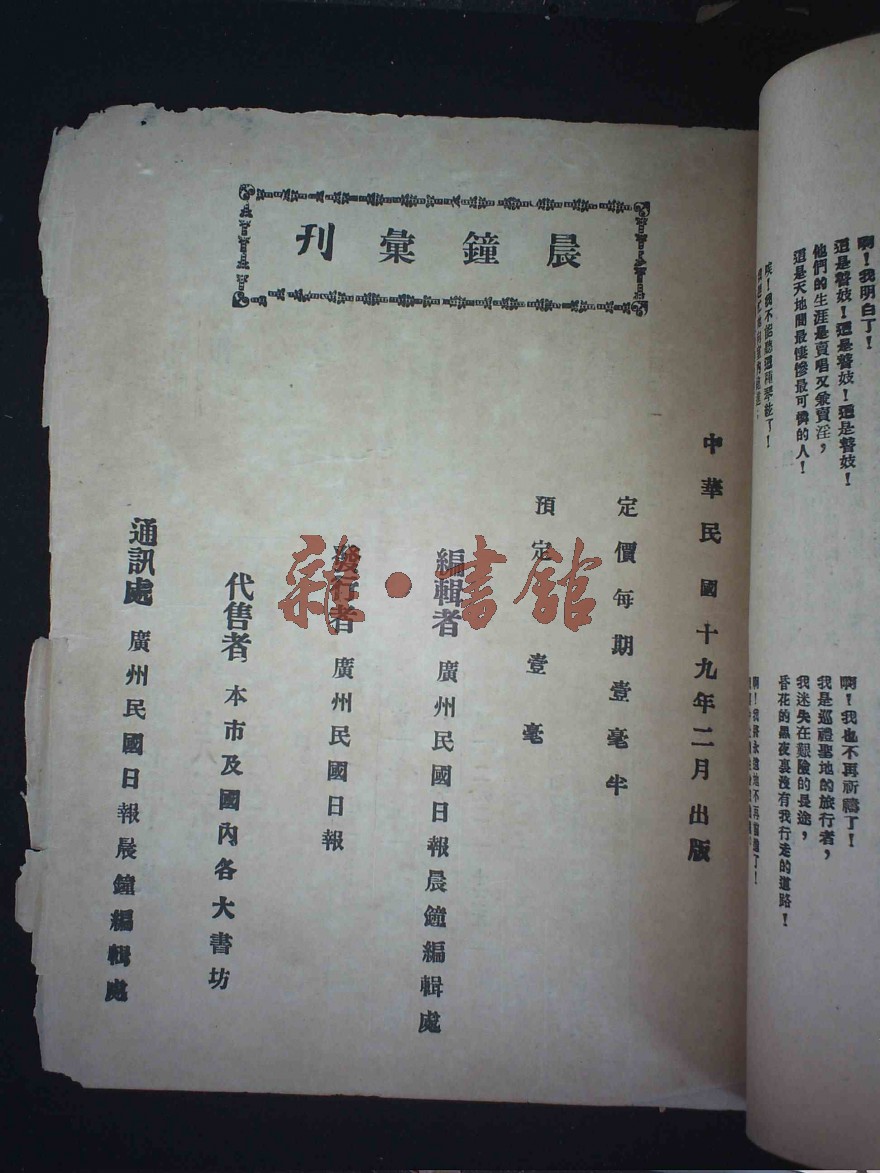 啊！我明白了！
這是瞽妓！這是瞽妓！這是瞽妓！
他們的生涯是賣唱又兼賣淫，
這是天地間最悽慘最可憐的人！
唉！我不能聽這種琴絃了！
啊！我也不再祈禱了！
我是巡禮聖地的旅行者，
我迷失在艱險的長途，
昏花的黑夜裏沒有我行走的道路！
晨鐘彙刊
中華民國十九年二月出版
定價每期壹毫半
預定壹毫
編輯者 廣州民國日報晨鐘編輯處
發行者 廣州民國日報
代售者 本市及國內各大書坊
通訊處 廣州民國日報晨鐘編輯處
雜·書館